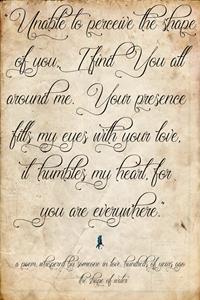 "Unable to perceive the shape
of you, I find You all
around me. Your presence
fills my eyes with your love,
it humbles my heart, for
you are everywhere."
a poem, whispered by someone in love, hundreds of years ago
the shape of water